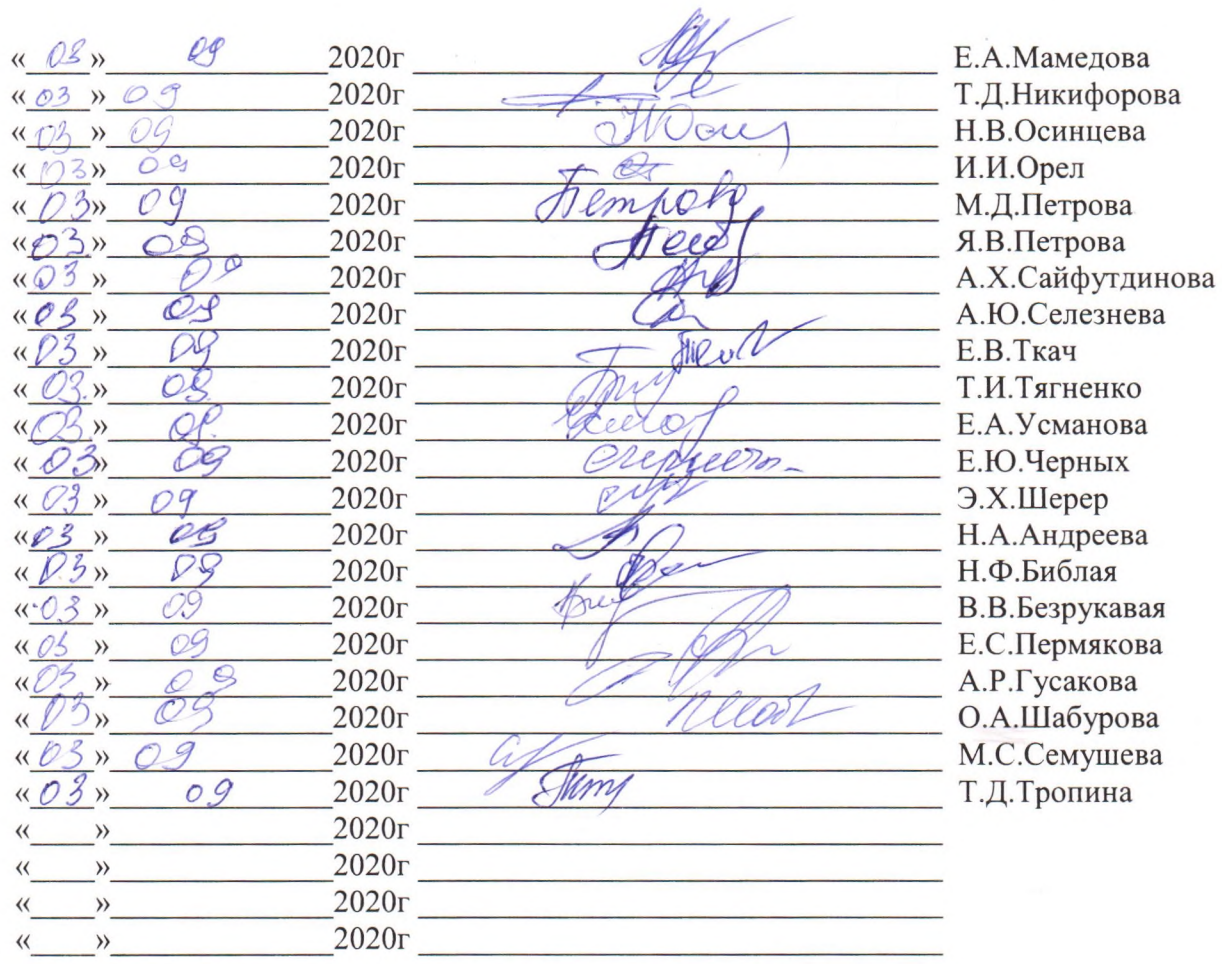 « 03 » 09 2020г Е.А.Мамедова
« 03 » 09 2020г Т.Д.Никифорова
« 03 » 09 2020г Н.В.Осинцева
« 03 » 09 2020г И.И.Орел
« 03 » 09 2020г Петрова М.Д.Петрова
« 03 » 09 2020г Я.В.Петрова
« 03 » 09 2020г А.Х.Сайфутдинова
« 03 » 09 2020г А.Ю.Селезнева
« 03 » 09 2020г Е.В.Ткач
« 03. » 09. 2020г Т.И.Тягненко
« 03. » 09. 2020г Е.А.Усманова
« 03 » 09 2020г Е.Ю.Черных
« 03 » 09 2020г Э.Х.Шерер
« 03 » 09 2020г Н.А.Андреева
« 03 » 09 2020г Н.Ф.Библая
« 03 » 09 2020г В.В.Безрукавая
« 03 » 09 2020г Е.С.Пермякова
« 03 » 09 2020г А.Р.Гусакова
« 03 » 09 2020г О.А.Шабурова
« 03 » 09 2020г М.С.Семушева
« 03 » 09 2020г Т.Д.Тропина
«____»____________2020г
«____»____________2020г
«____»____________2020г
«____»____________2020г